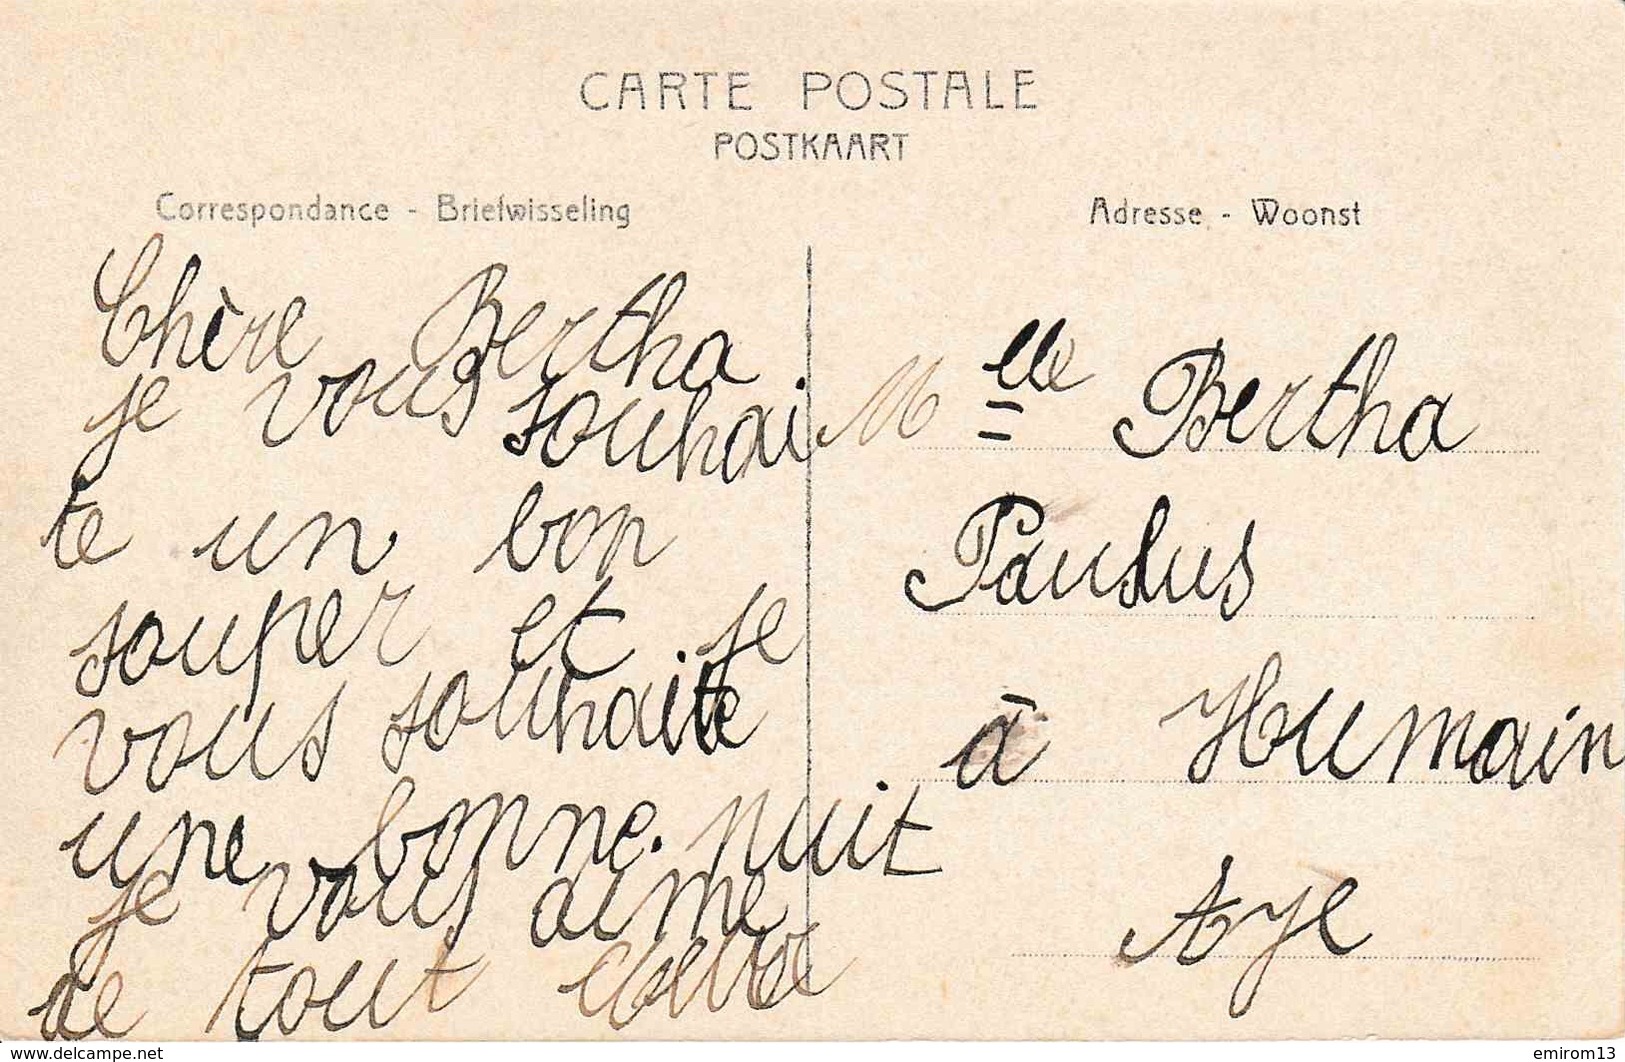 CARTE POSTALE
POSTKAART
Correspondance - Briefwisseling
Chère Bertha
je vous souhai
te un bon
souper et je
vous souhaite
une bonne nuit
je vous aime
de tout
Adresse - Woonst
Mlle Bertha
Paulus
à Humain
Aye
www.delcampe.net
emirom13